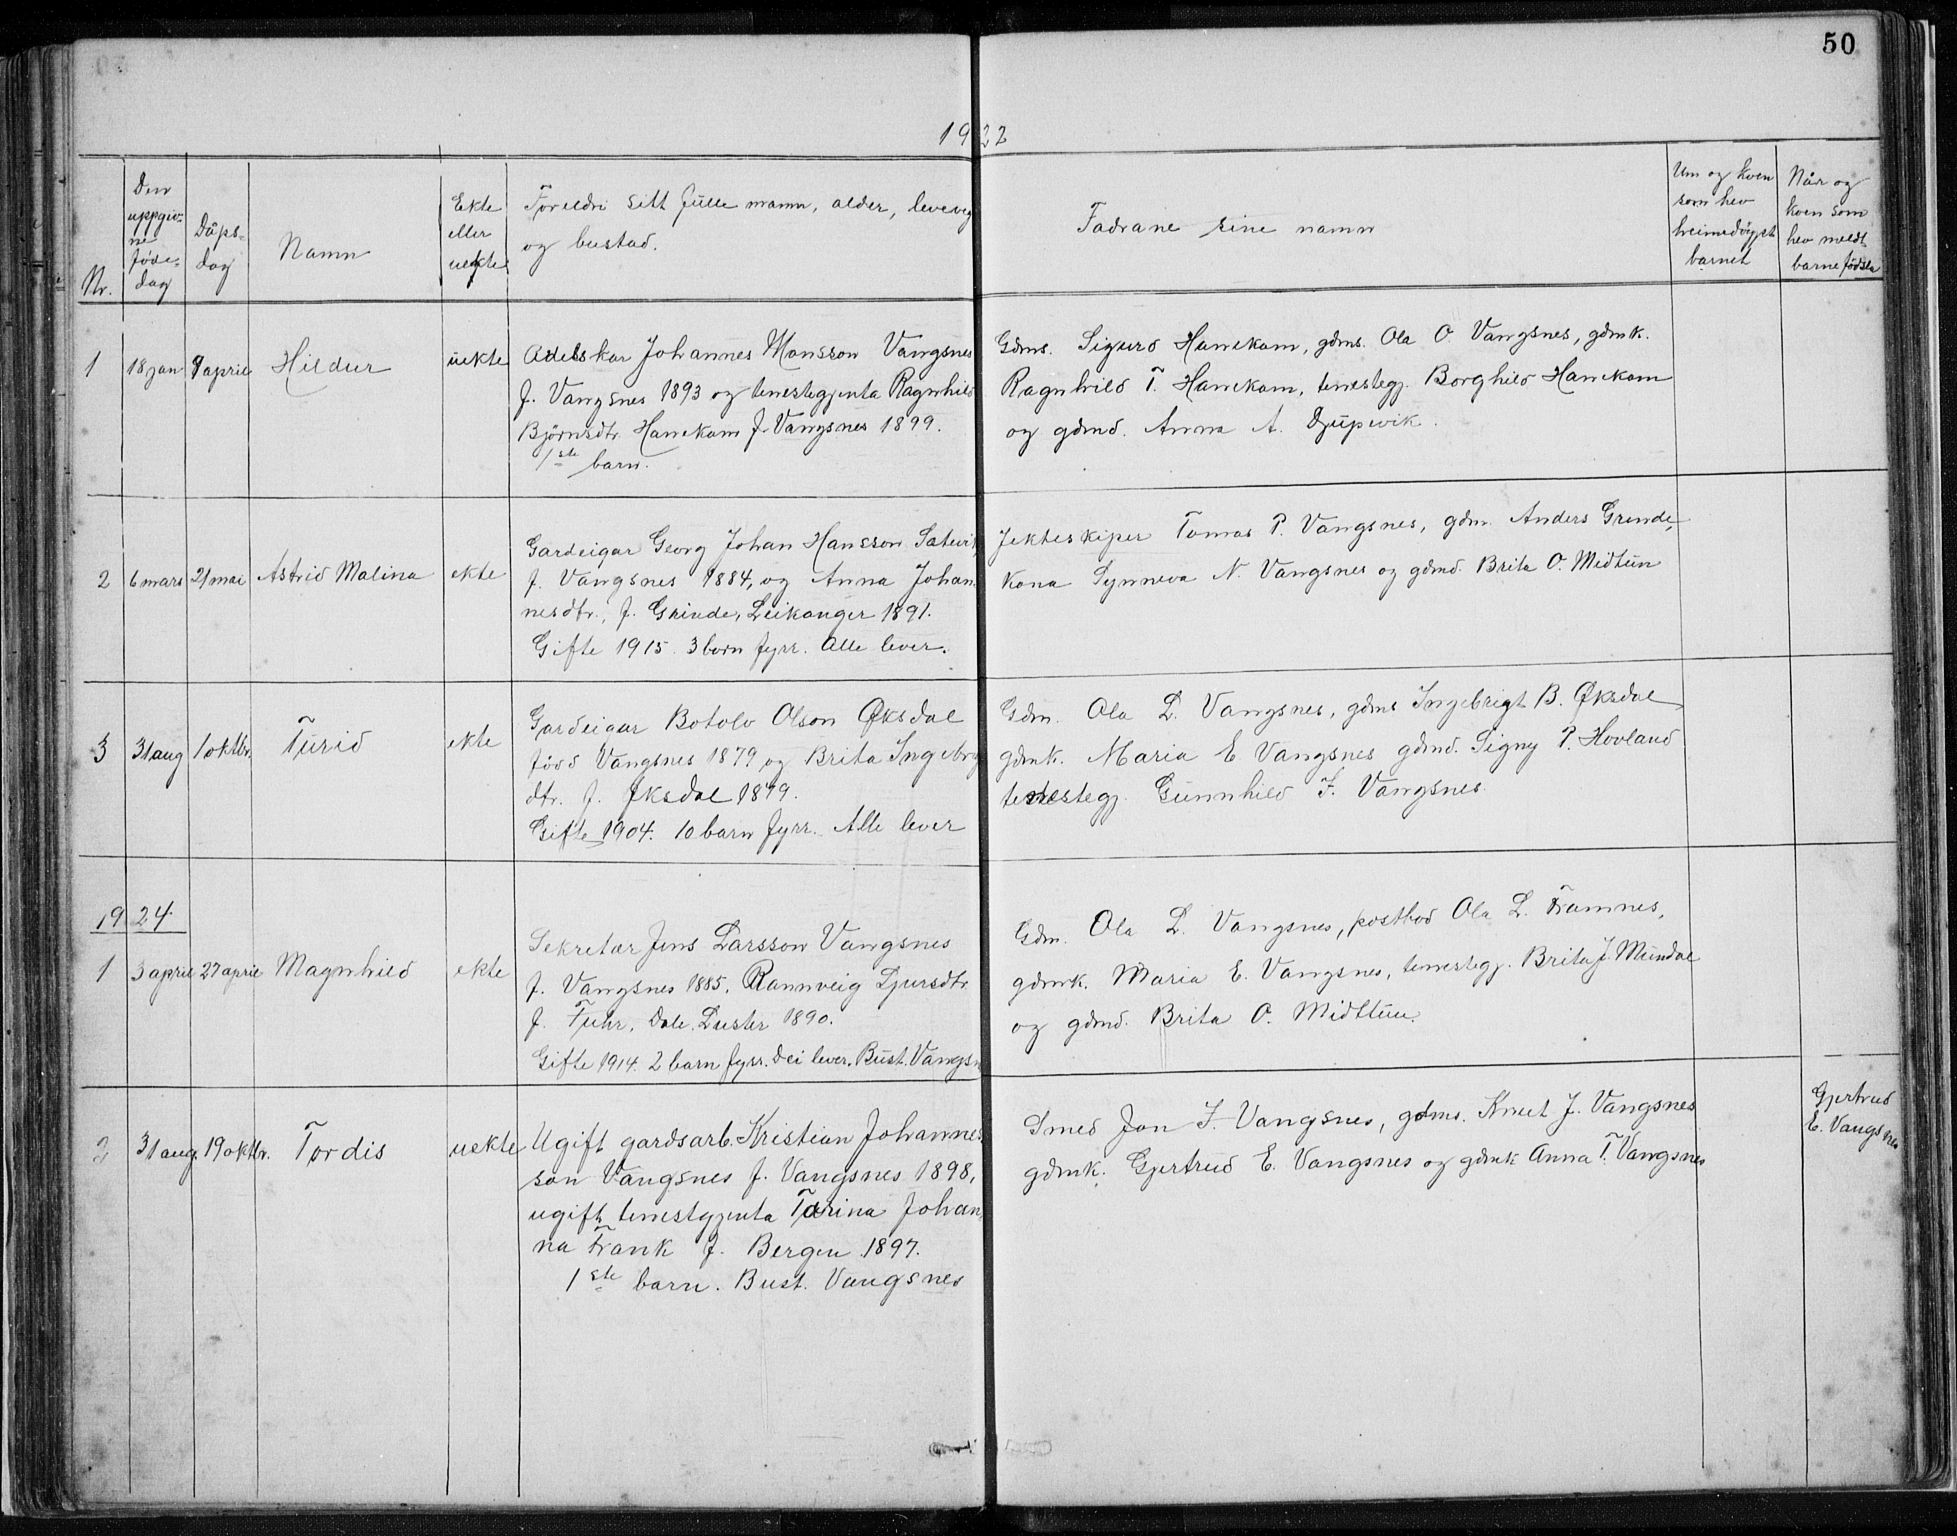 50
1922
Nr.
Den uppgiv-
ne
føde-
dag
Dåps-
dag
Namn
Ekte
eller
uekte
Foreldri sitt fulle namn, alder, leveveg
og bustad.
Fadrane sine namn
Um og kven
som hev
heimedøypt
barnet
Når og
kven som
hev meldt
barnefødsla
1 18 jan 9 april Hildur uekte
Johannes Monsson Vangsnes
f. Vangsnes 1893 og tenestegjenta Ragnhild
Bjørnsdtr. Hanekam f. Vangsnes 1899.
1ste barn.
Gdms. Sigurd Hanekam, gdms. Ola O. Vangsnes, gdmk.
Ragnhild T. Hanekam, tenestegj. Borghild Hanekam
og gdmd. Anna A. Djupevik.
2 6 mars 21 mai Astrid Malina ekte
Gardeigar Georg Johan Hansson Sætevik
f. Vangsnes 1884, og Anna Johan
nesdtr., f. Grinde, Leikanger 1891.
Gifte 1915. 3 born fyrr. Alle lever.
Jekteskiper Tomas P. Vangsnes, gdm. Anders Grinde,
Kona Synneva N. Vangsnes og gdmd. Brita O. Midtun
3 31 aug 1 oktbr. Turid ekte
Gardeigar Botolv Olson Øksdal
född Vangsnes 1879 og Brita Ingebrigt
dtr. f. Øksdal 1879.
Gifte 1904. 10 barn fyrr. Alle lever
Gdm. Ola L. Vangsnes, gdms Ingebrigt B. Øksdal
gdmk. Maria E Vangsnes gdmd. Signy P. Hovland
tenestegj. Gunnhild J. Vangsnes
1924.
1 3 april 27 april Magnhild ekte
Sekretær Jens Larsson Vangsnes
f. Vangsnes 1885, Rannveig Sjursdtr
f. Fuhr, Dale, Luster 1890.
Gifte 1914. 2 barn fyrr. Dei lever. Bust. Vangsn
Gdm. Ola L. Vangsnes, postbod Ola L. Framnes,
gdmk. Maria E. Vangsnes, tenestegj. Brita J. Mundal
og gdmd. Brita O. Midttun.
2 31 aug. 19 oktbr. Tordis uekte
Ugift gardsarb. Kristian Johannes
son Vangsnes f. Vangsnes 1898,
ugift tenestgjenta Torina Johan
na Frank f. Bergen 1897.
1ste barn. Bust. Vangsnes
Smed Jon J. Vangsnes, gdms. Knut J. Vangsnes
gdmk. Gjertrud E. Vangsnes og gdmk Anna T. Vangsnes
Gjertrud
E. Vangsnes